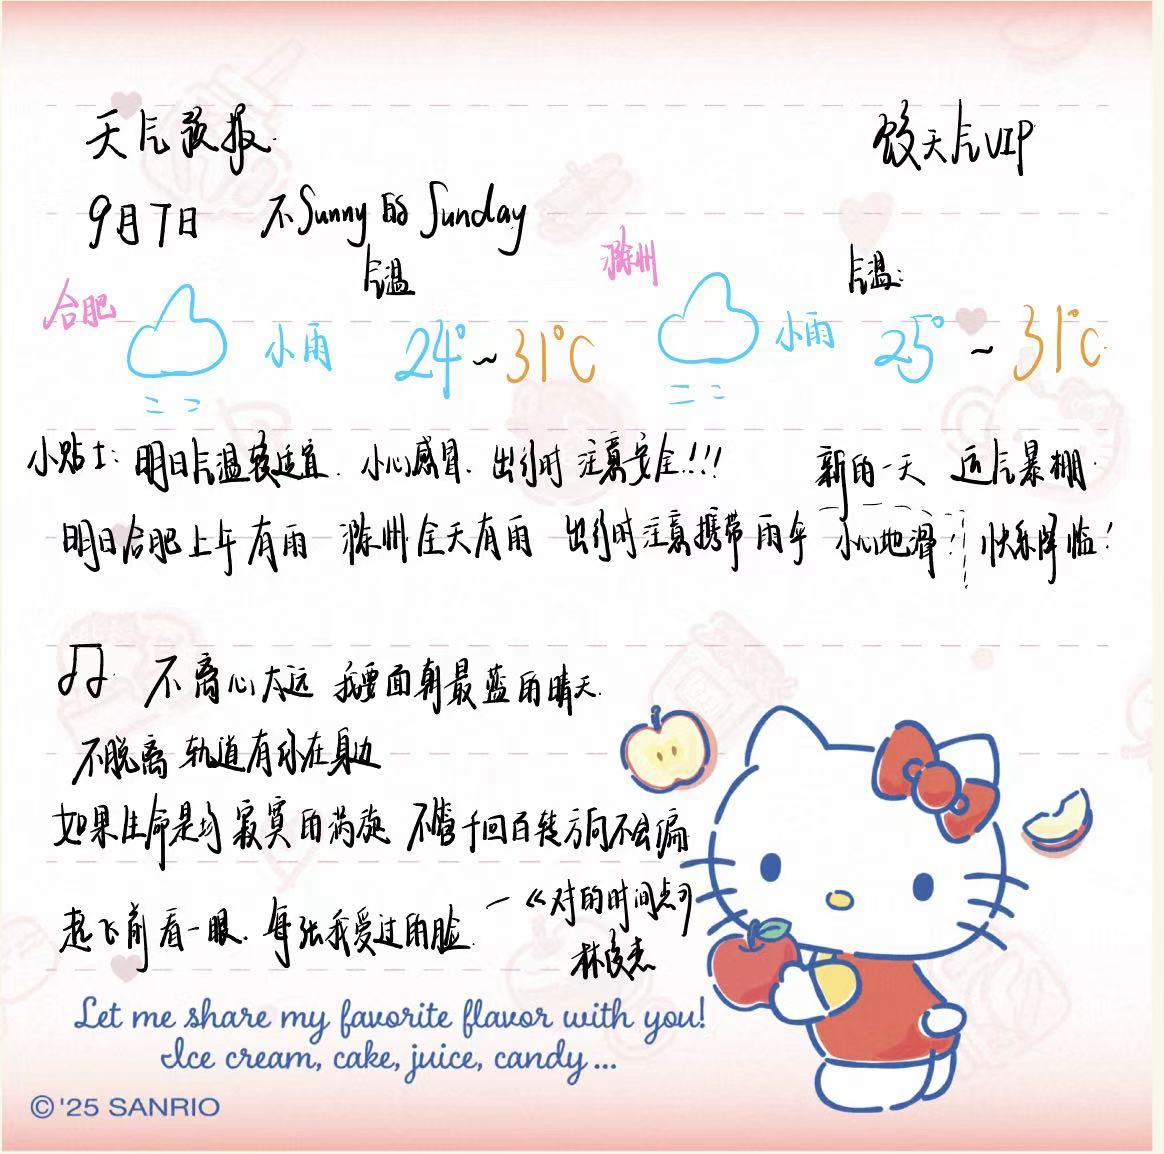 天气预报 饺天气VIP
9月7日 不Sunny的Sunday
合肥 小雨 气温 24°~31℃
滁州 小雨 气温: 25°~31℃
小贴士: 明日气温较适宜. 小心感冒. 出行时注意安全!!! 新的一天 运气暴棚.
明日合肥上午有雨 滁州全天有雨 出行时注意携带雨伞 小心地滑! 快乐降临!
不离心太远 我要面朝最蓝的晴天.
不脱离轨道有你在身边
如果生命是场寂寞的涡旋 不管千回百转方向不会偏
起飞前看一眼. 每张我爱过的脸.
—《对的时间点》
林俊杰
Let me share my favorite flavor with you!
Ice cream, cake, juice, candy...
©'25 SANRIO